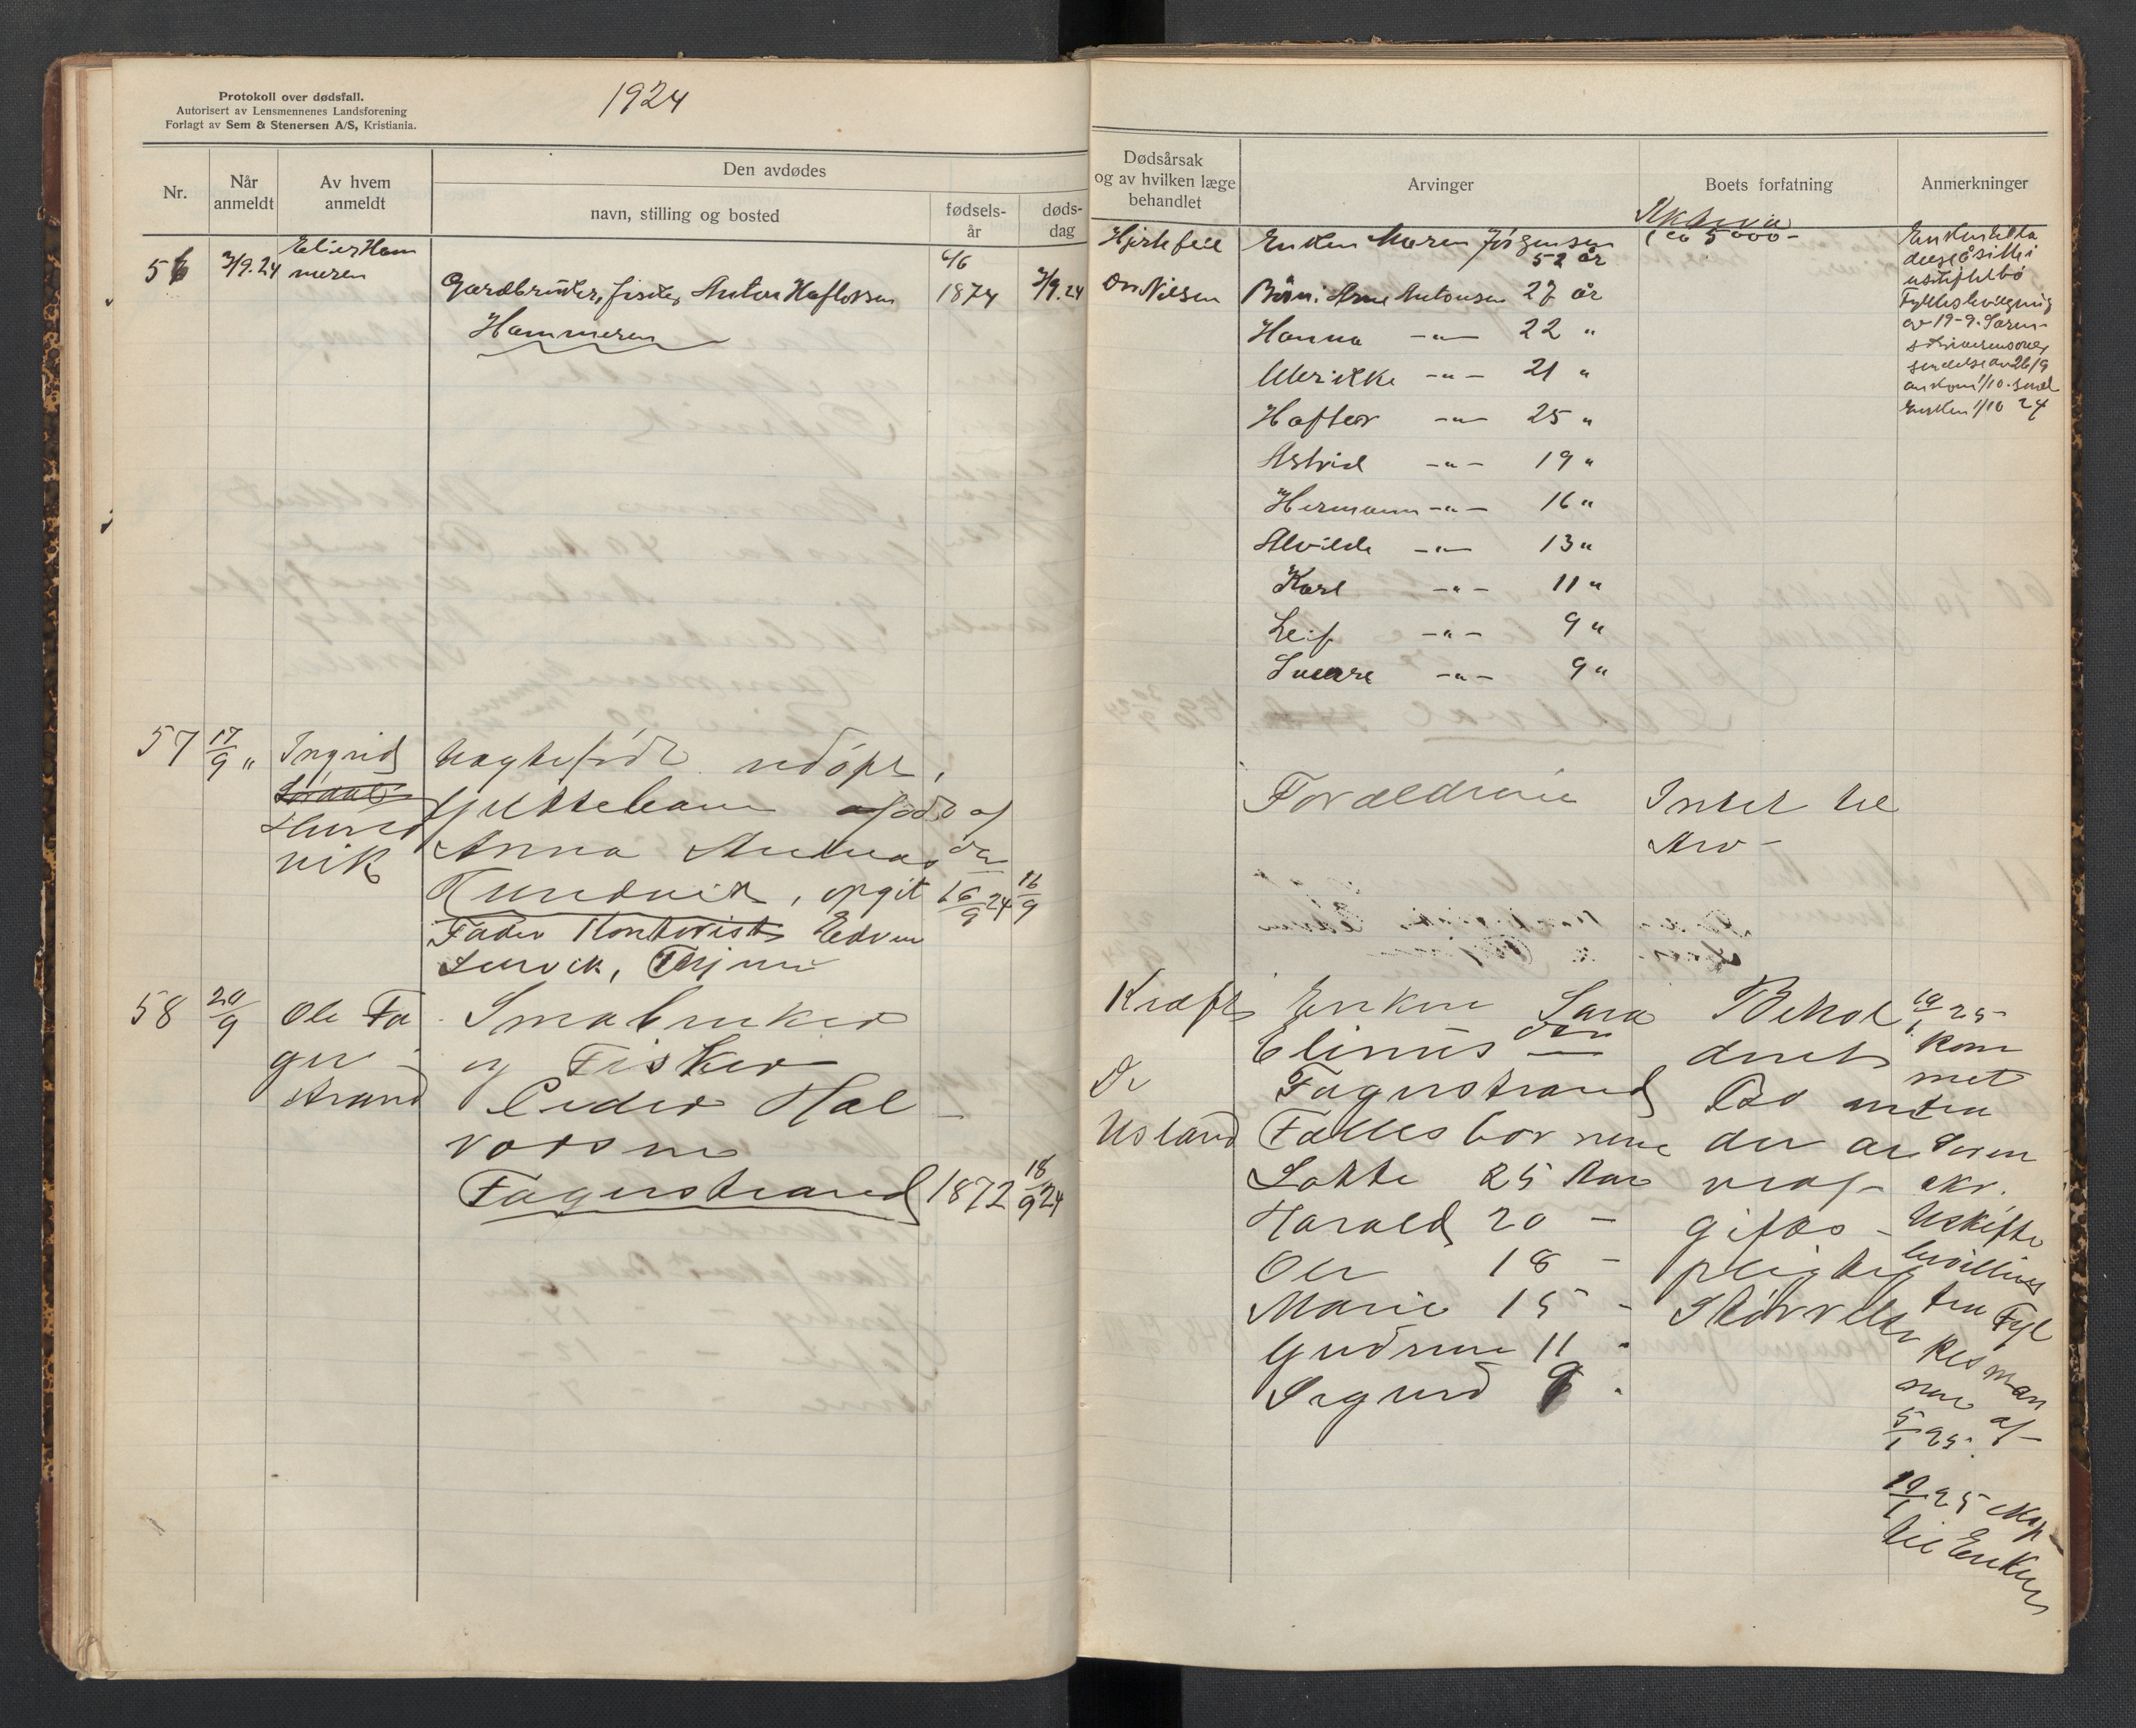 Protokoll over dødsfall.
Autorisert av Lensmennenes Landsforening
Forlagt av Sem & Stenersen A/S, Kristiania.
1924
Nr.
Når anmeldt
Av hvem anmeldt
Den avdødes
navn, stilling og bosted
fødsels-år
døds-dag
Dødsårsak
og av hvilken læge
behandlet
Arvinger
Boets forfatning
Anmerkninger
56
7/9.24
Elier Ham
meren
Gardbruker, fisker, Anton Haftorsen
Hammeren
6/6
1874
7/9.24
Hjertefeil
Dr. Nilsen
Enken Maren Jörgensen
52 år
Börn: Arne Antonsen 27 år
Hanna -"- 22 "
Ulrikke -"- 21 "
Haftor -"- 25 "
Astrid -"- 19 "
Hermann -"- 16 "
Alvilde -"- 13 "
Karl -"- 11 "
Leif -"- 9 "
Sverre -"- 9 "
Aktiva
ca 5000-
Enken
sitte i
uskiftet bo
Fylkesbevilgning
av 19-9. Soren-
skriverens over
sendelse av 26/9
ankom 1/10. sendt
Enken 1/10 24
57
17/9 "
Ingrid
vik
udöpt,
Pikkebarn födt af
Anna
, opgit
Fader Edvin
16/9 24
16/9
Forældrene
Intet til
Arv -
58
20/9
Ole Fa
ger-
strand
Smabruker
og Fisker
Peder Hal-
vorsen
Fagerstrand
1872
18/9 24
Kræft
Dr
Usland
Enken Sara
Elinusdtr
Fagerstrand
Fællesbørnene
Lotte 25 Aar
Harald 20 -
Ole 18 -
Marie 15 -
Gudrun 11 -
Sigurd 9 -
Behol
dnet
Bo under
der ar
veaf-
gifts-
pligtig
Störrelse
10/1 25
kom
met
fra
Soren
skr.
Uskifte
bevilling
fra Fyl
kesman
nen af
5/1 25.
10/1 25
til Enken